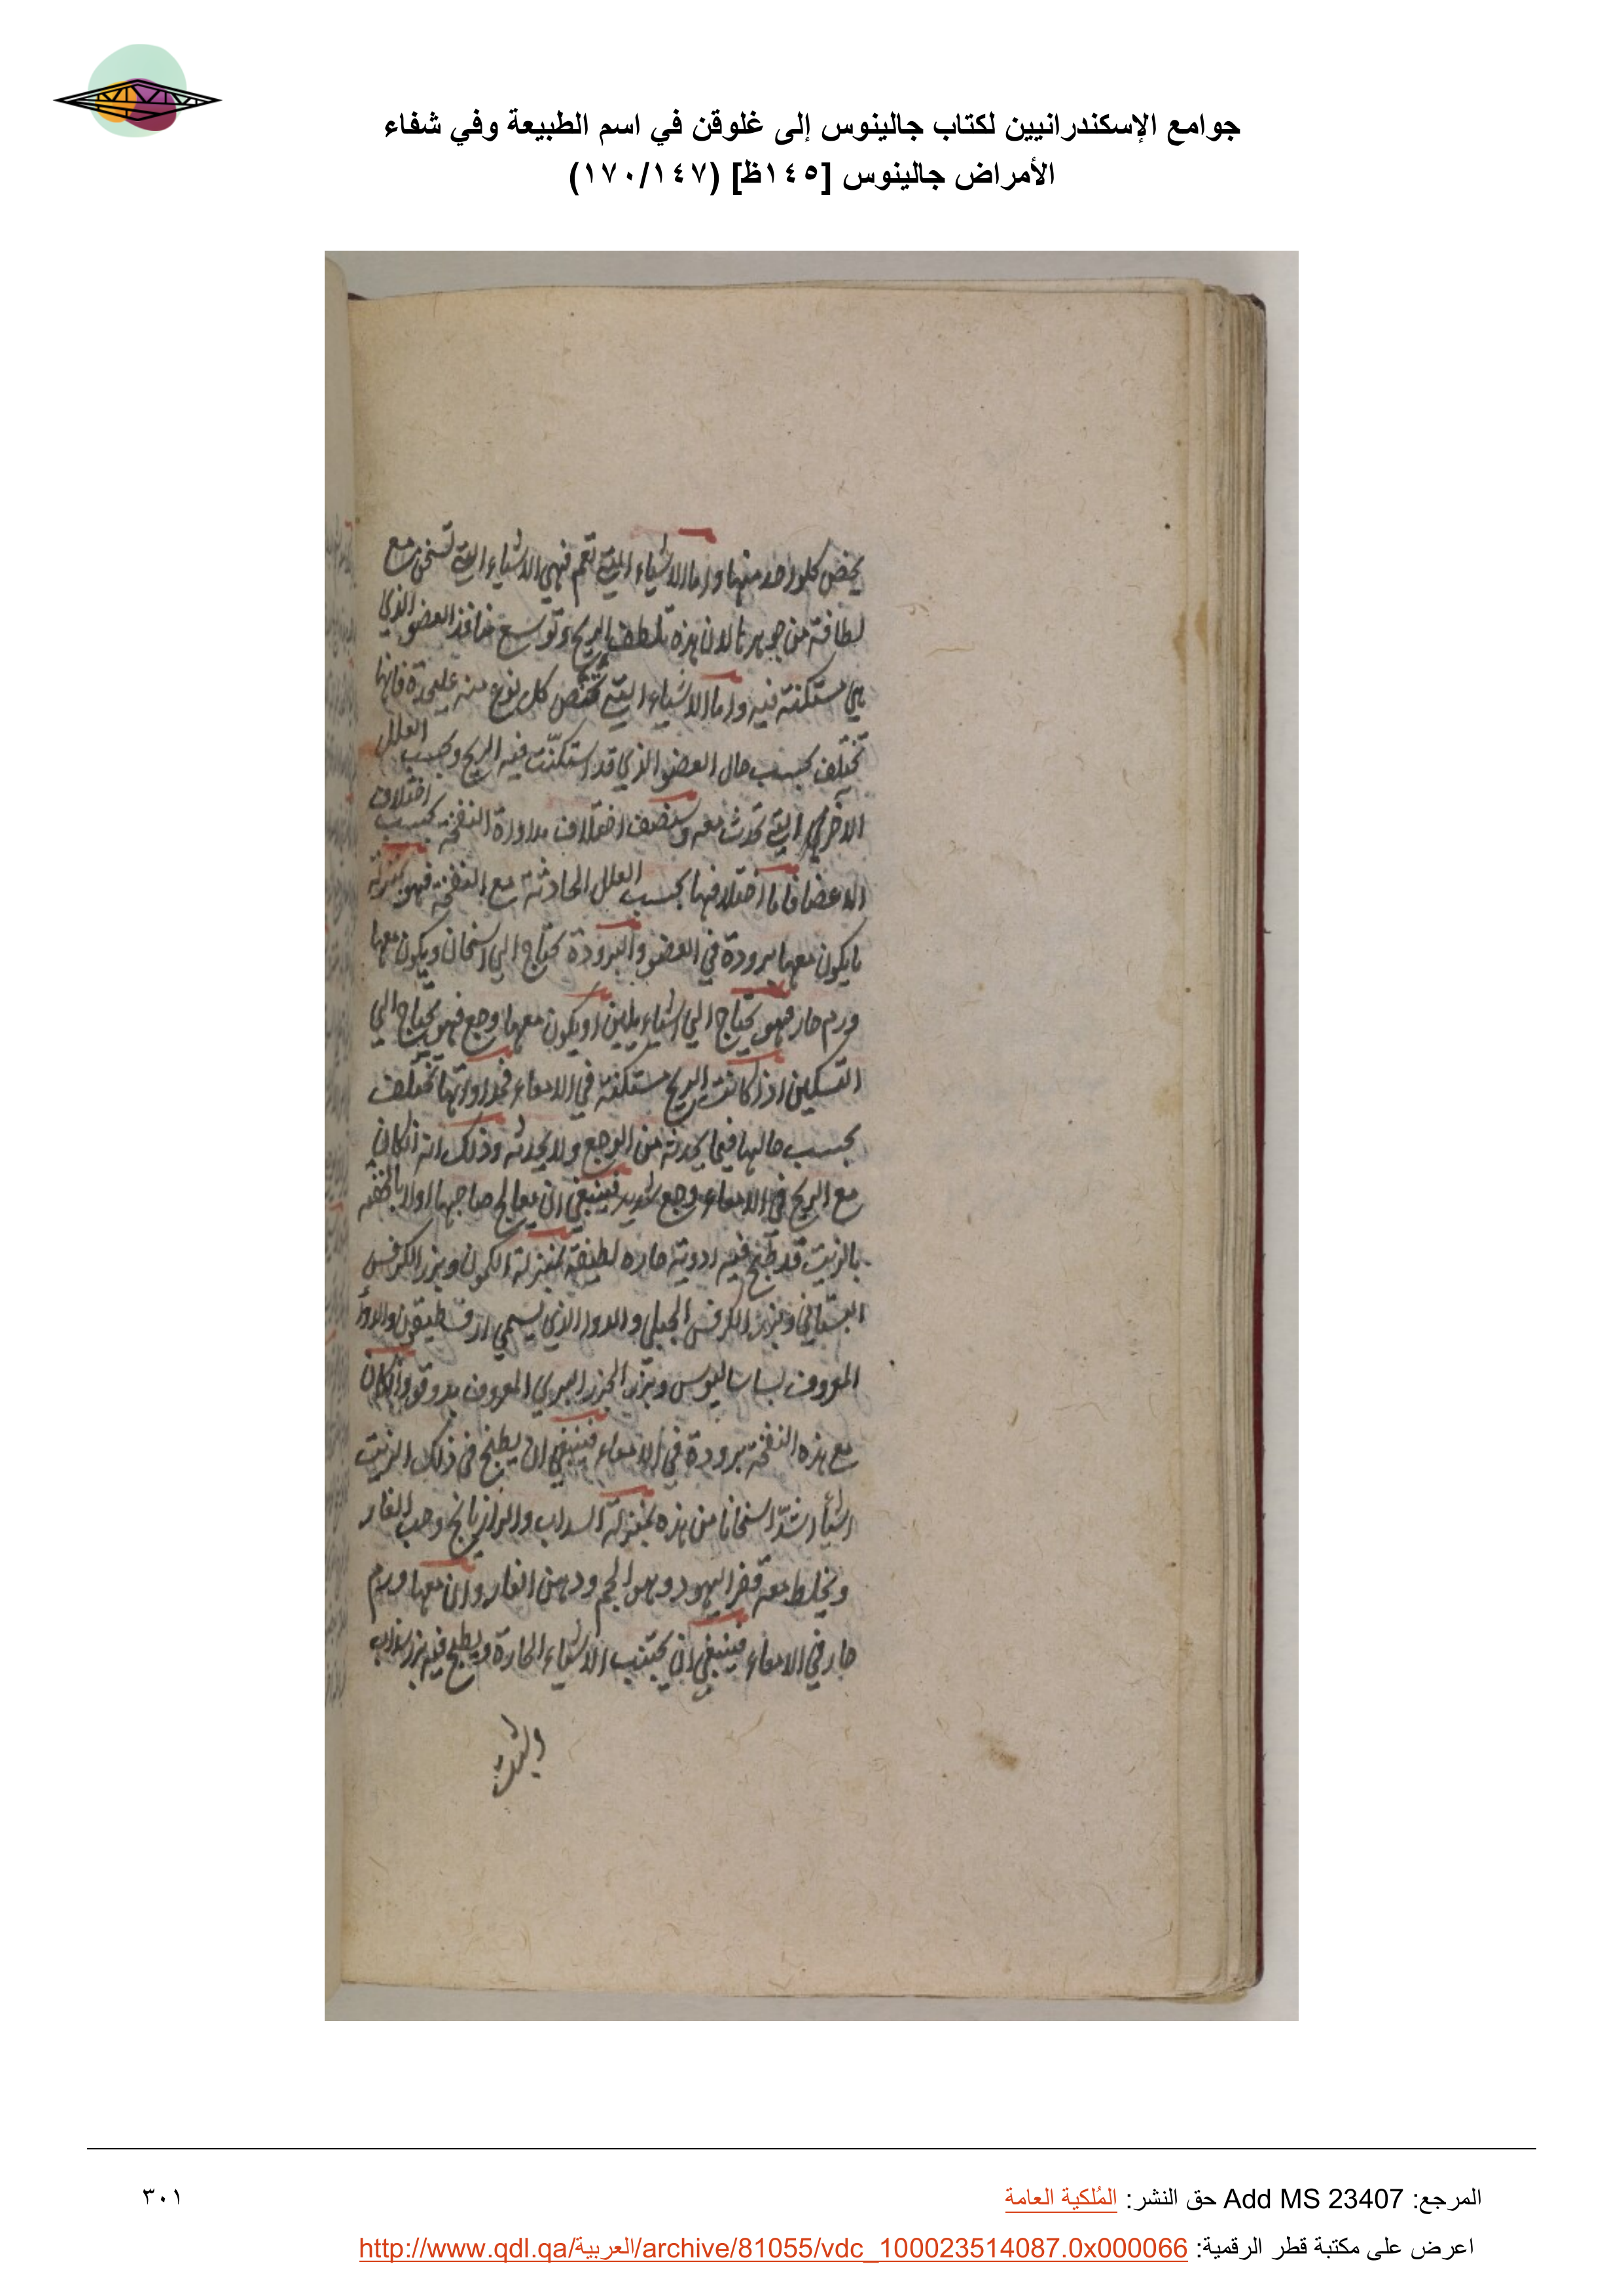 جوامع الإسكندرانيين لكتاب جالينوس إلى غلوقن في اسم الطبيعة وفي شفاء
الأمراض جالينوس [١٤٥ظ] (١٧٠/١٤٧)
يخص كلواحد منها واما الاشياء التي تعم فهي الاشياء التي تسخن مع
لطافة من جوهرها لان هذه تلطف الريح وتوسع منافذ العضو الذي
هي مستكنة فيه واما الاشياء التي تختص كل نوع منه عليحدة فانها
تختلف بحسب حال العضو الذي قد استكنّت فيه الريح وبحسب العلل
الاخري التي تحدث معه وسنصف اختلاف مداورة النفخة بحسب اختلاف
الاعضا فاما اختلافها بحسب العلل الحادثة مع النفخة فهو بمنزلة
ما يكون معها برودة في العضو والبرودة تحتاج الي اسخان ويكون معها
ورم حار فهو يحتاج الي اشياء يلين او يكون معها وجع فهو يحتاج الي
التسكين اذا كانت الريح مستكنة في الامعاء فمداواتها تختلف
بحسب حالها فيما يحدثه من الوجع ولا يحدثه وذلك انه انكان
مع الريح في الامعاء وجع شديد فينبغي ان يعالج صاحبها اولا بالحقنه
بالزيت قد طبخ فيه ادوية حاره لطيفة بمنزلة الكمون وبزر الكرفس
البستاني وبزر الكرفس الجبلي والدوا الذي يسمي
المعروف بساساليوس وبزر الجزر البري المعروف بدوقو وانكان
مع هذه النفخة برودة في الامعاء فينبغي ان يطبخ في ذلك الزيت
اشيأ اشدّ اسخانا من هذه بمنزلة السداب والرازيانج وحب الغار
ويخلط معه قفر اليهود وهو الحمر ودهن الغار وان معها ورم
حار في الامعاء فينبغي ان يجتنب الاشياء الحارة ويطبخ فيه بزر سداب
والشبت
المرجع: Add MS 23407 حق النشر: المُلكية العامة
٣٠١
اعرض على مكتبة قطر الرقمية: http://www.qdl.qa/العربية/archive/81055/vdc_100023514087.0x000066